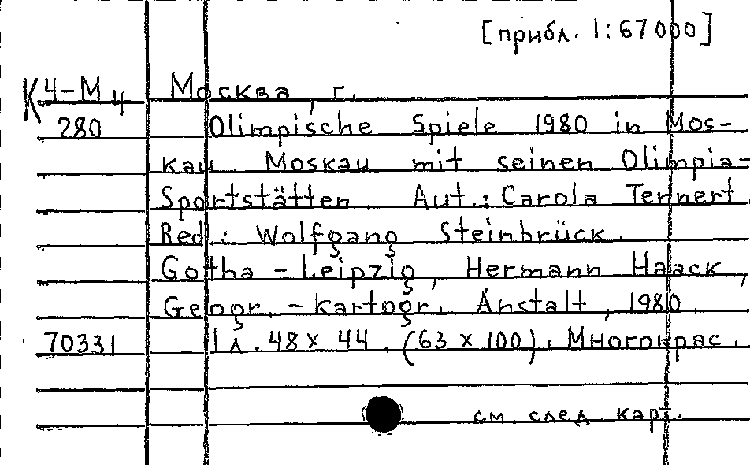 [прибл. 1:67000]
К4-М4 Москва, г.
280 Olimpische Spiele 1980 in Mos-
kau Moskau mit seinen Olimpia-
Sportstätten Aut.: Carola Tennert.
Red.: Wolfgang Steinbrück.
Gotha - Leipzig, Hermann Haack,
Geogr. - kartogr. Anstalt, 1980
70331 1 л. 48 x 44. (63 x 100). Многокрас.
см. след. карт.